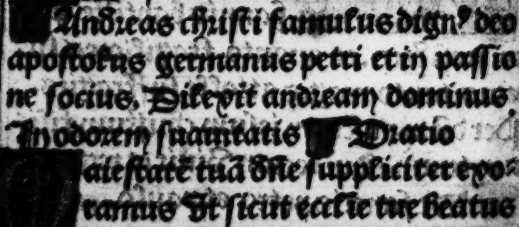 Andreas christi famulus dignꝰ deo
apostolus germanus petri et in passio
ne socius. Dilexit andream dominus
In odorem suauitatis Oratio
Maiestatē tuā dn̄e suppliciter exo⸗
ramus Vt sicut ecclīe tue beatus